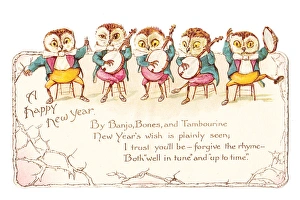 A
Happy
New Year
By Banjo, Bones, and Tambourine
New Year's wish is plainly seen;
I trust you'll be – forgive the rhyme –
Both "well in tune" and "up to time."